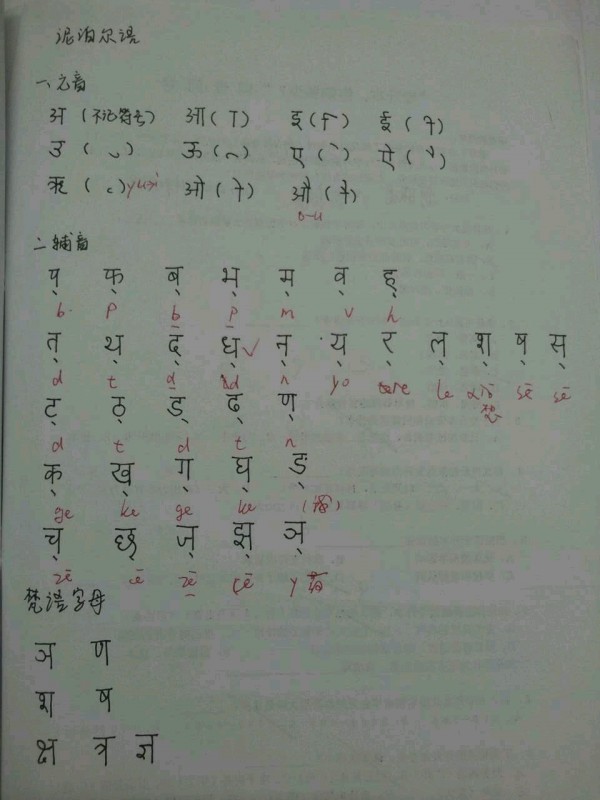 泥泊尔语
一、元音
अ (不记符号) आ (ा) इ (ि) ई (ी)
उ (ु) ऊ (ू) ए (े) ऐ (ै)
ऋ (ृ) ओ (ो) औ (ौ)
o-u
二、辅音
प् फ् ब् भ् म् व् ह्
b p b p m v h
त् थ् द् ध् न् य् र् ल् श् ष् स्
d t d n yo le sē sē
ट् ठ् ड् ढ् ण्
d t d t n
क् ख् ग् घ् ङ्
ge ke ge ke
च् छ् ज् झ् ञ्
zē cē zē cē y
梵语字母
ञ ण
श ष
क्ष त्र ज्ञ